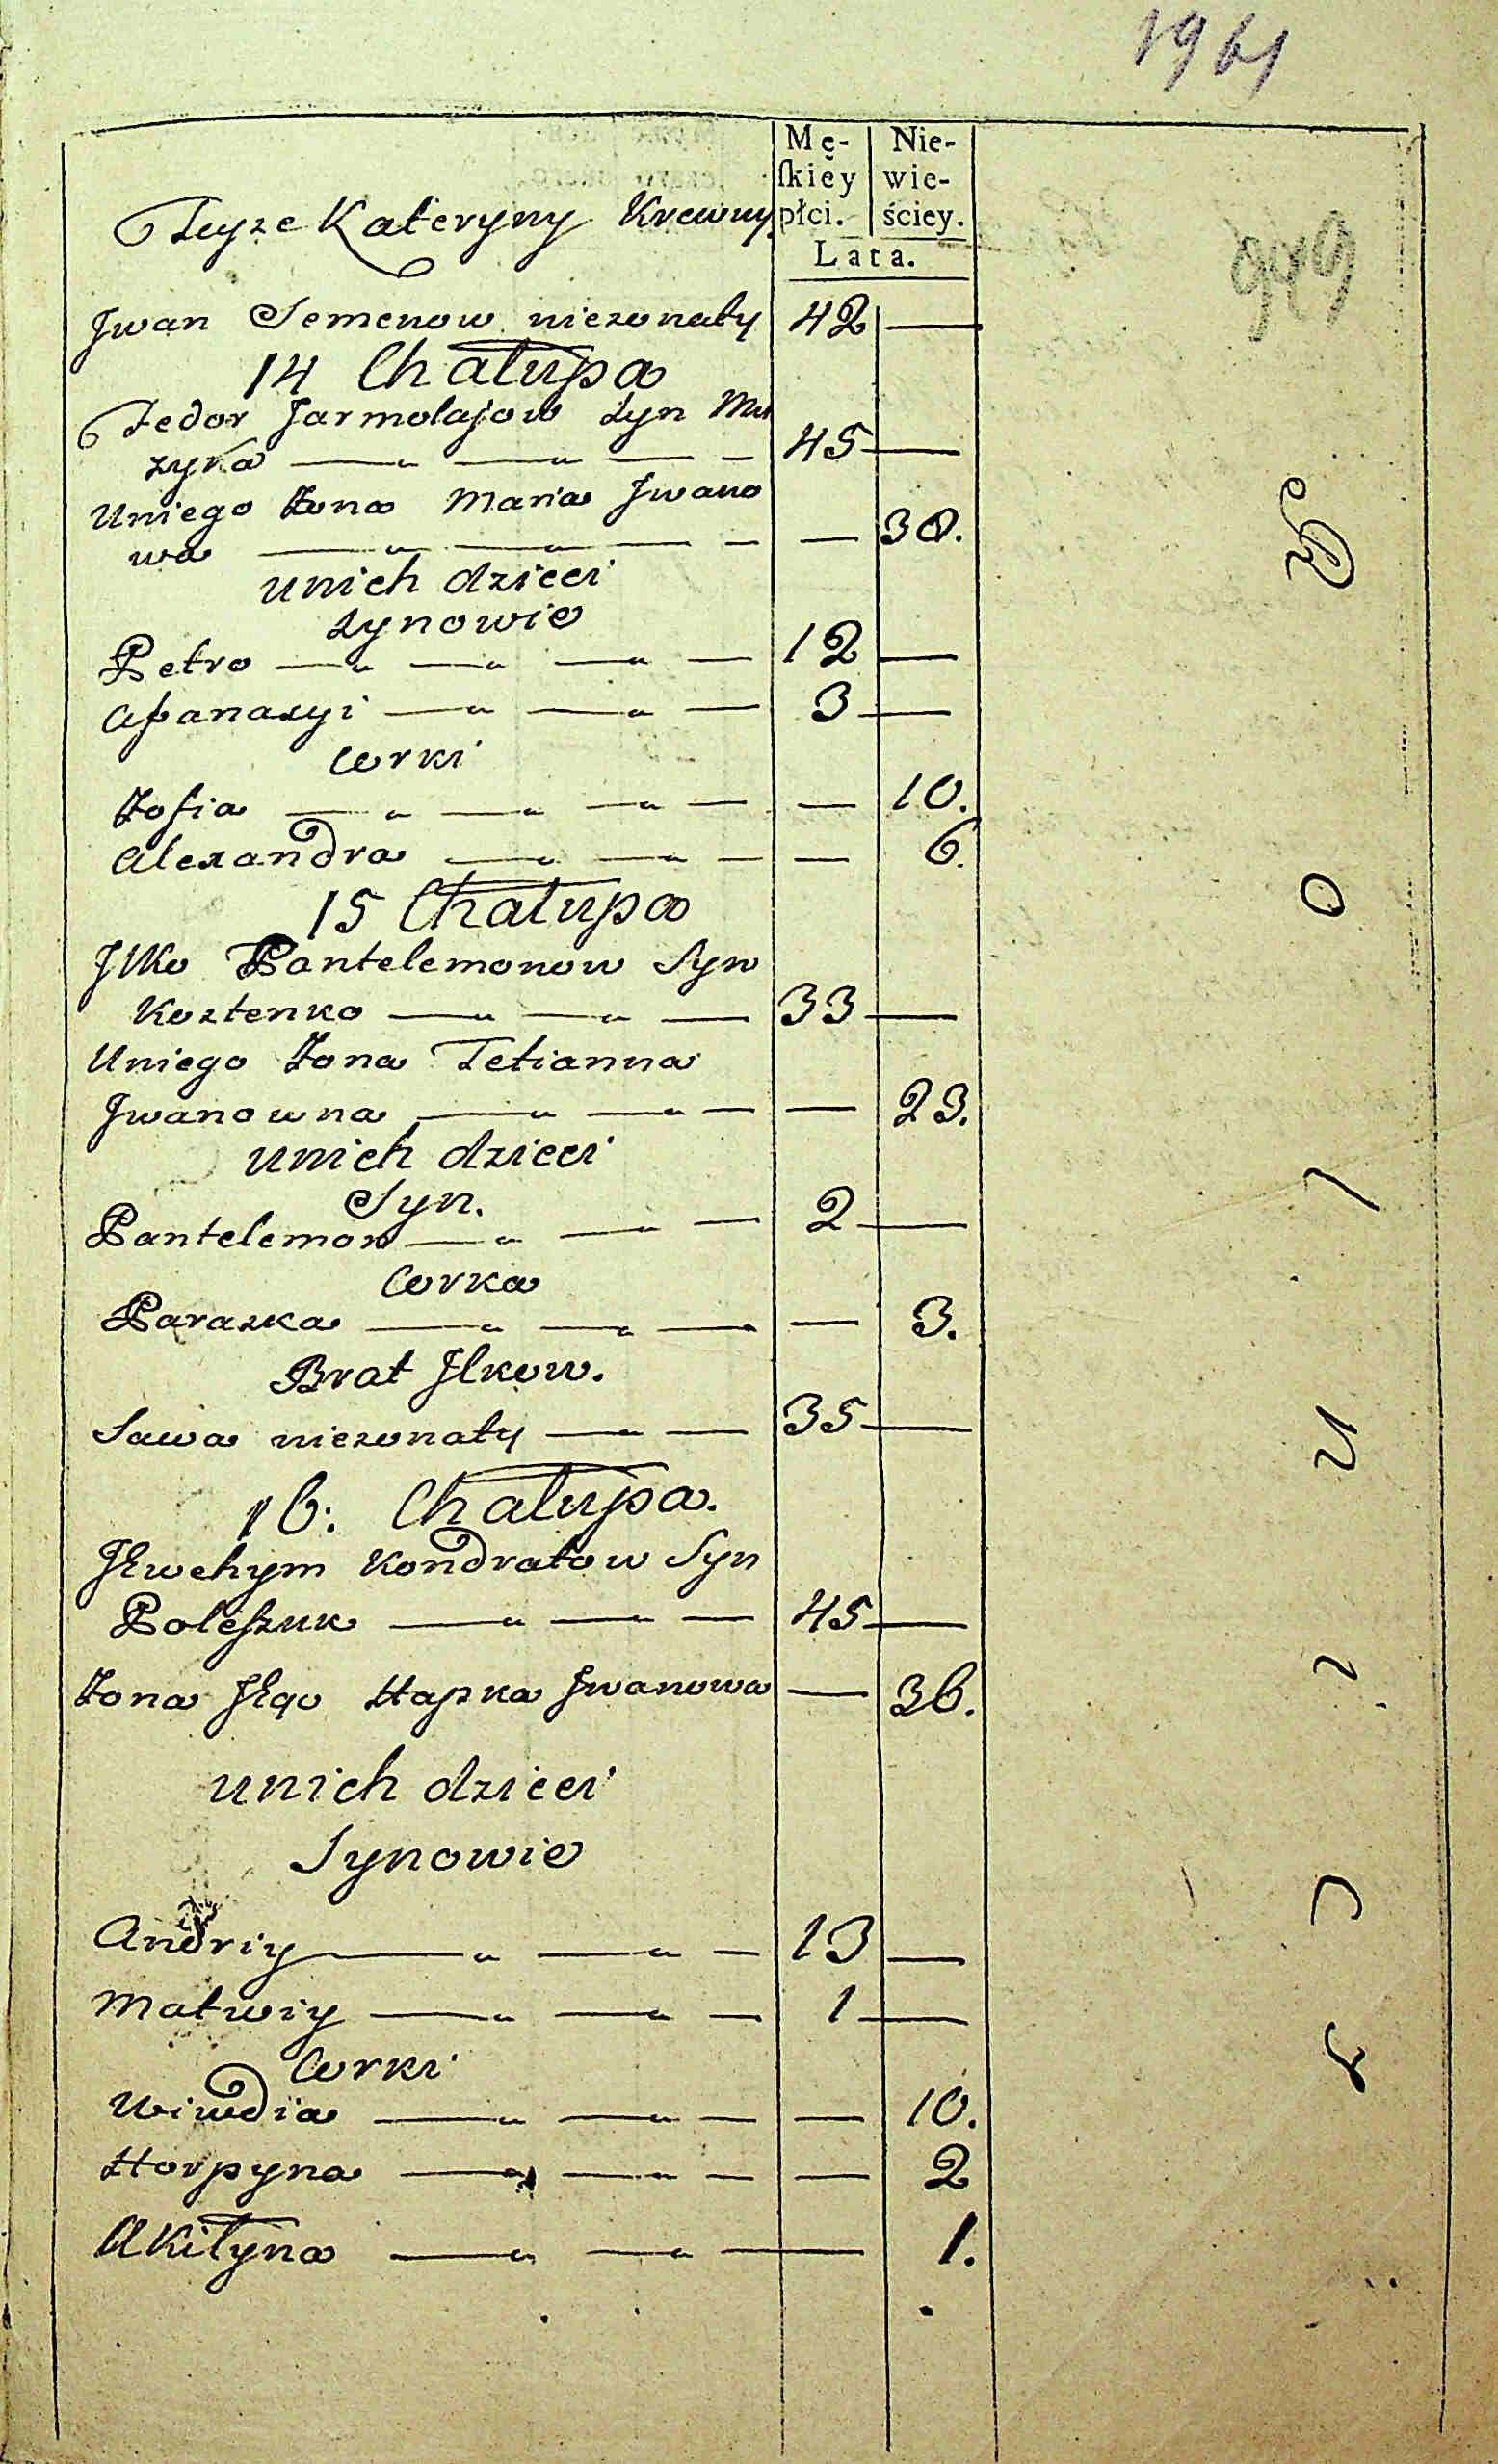 1961
Mę- Nie-
skiéy wie-
płci. ściey.
Lata.
949
Teyze Kateryny Krewny
Jwan Semenow niezonaty 42 —
14 Chałupa
Fedor Jarmolajow Syn Mu
zyka — — — — 45 —
Uniego Zona Maria Jwano
wa — — — — — 30.
unich dzieci
Synowie
Petro — — — — 12 —
Afanasyi — — — 3 —
Corki
Zofia — — — — — 10.
Alexandra — — — — 6.
15 Chałupa
Jlko Pantelemonow Syn
Kostenko — — — 33 —
Uniego Zona Tetianna
Jwanowna — — — — 23.
unich dzieci
Syn.
Pantelemon — — — 2 —
Corka
Paraska — — — — 3.
Brat Jlkow.
Sawa niezonaty — — 35 —
16. Chałupa.
Jewchym Kondratow Syn
Poleszuk — — — 45 —
Zona Jego Hapka Jwanowa — 36.
unich dzieci
Synowie
Andriy — — — 13 —
Matwiy — — — 1 —
Corki
Wiwdia — — — — 10.
Horpyna — — — — 2
Akiłyna — — — 1.